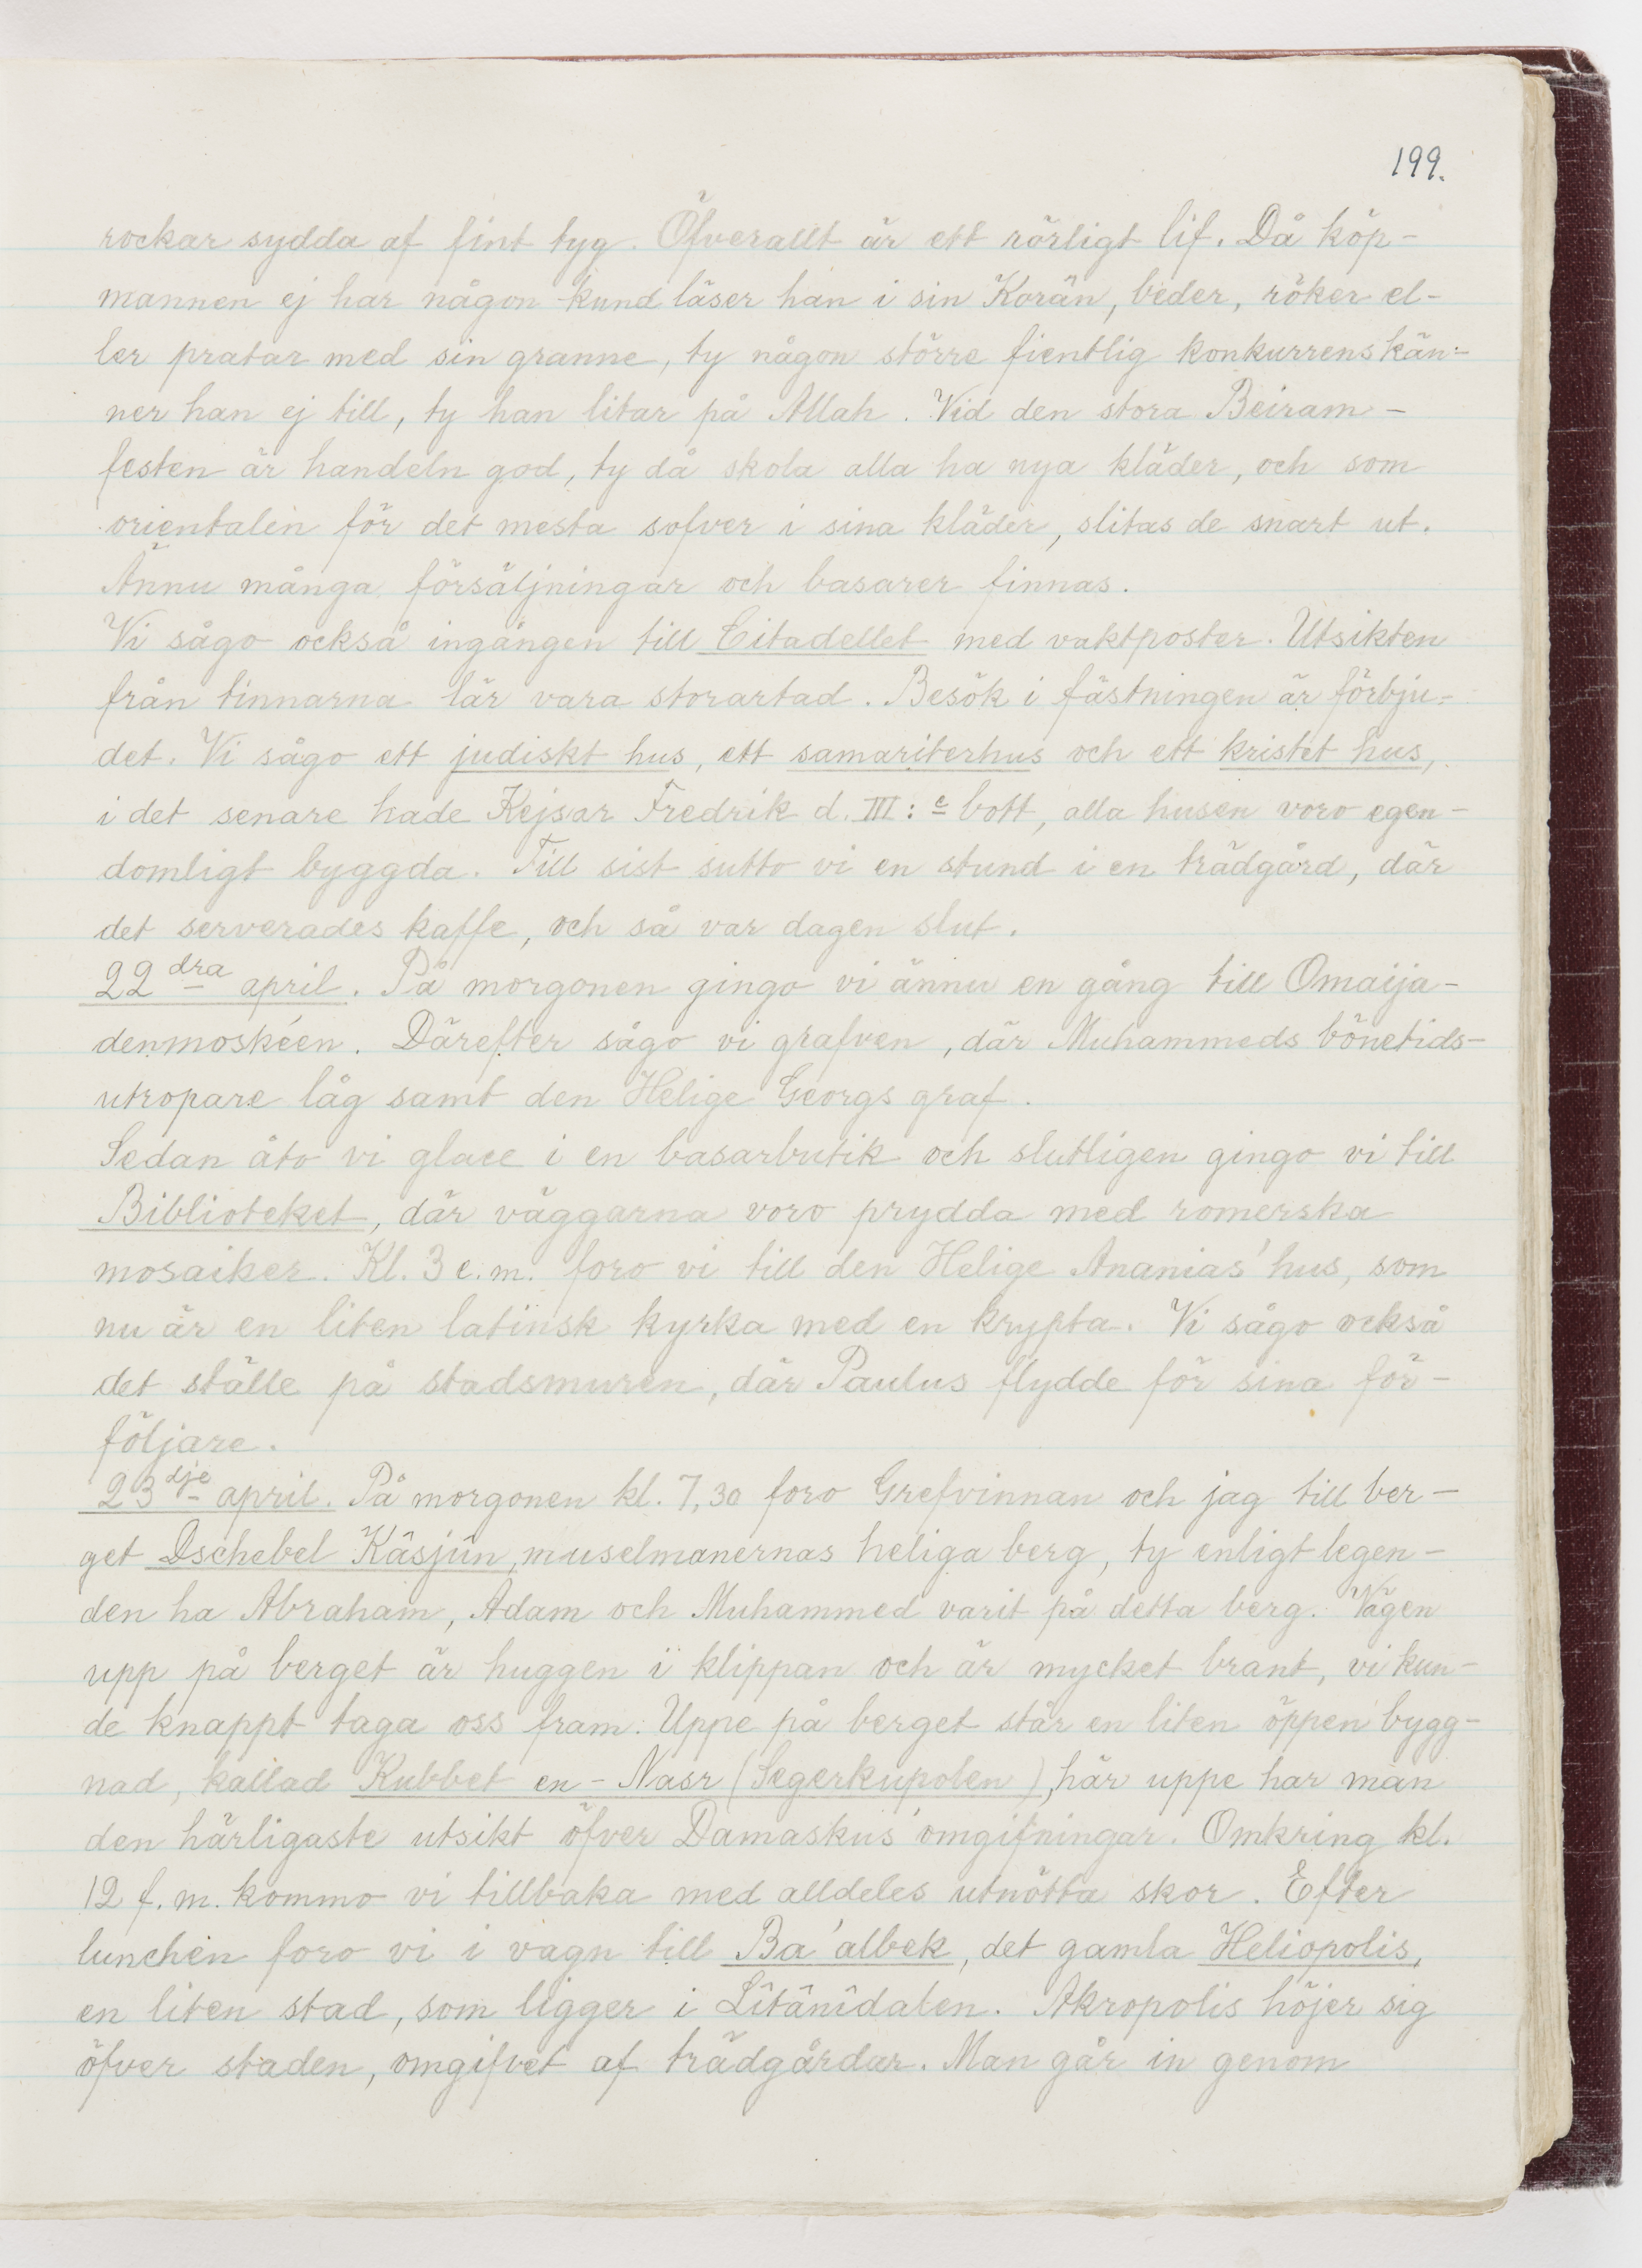 199.
rockar sydda af fint tyg. Öfverallt är ett rörligt lif. Då köp-
mannen ej har någon kund läser han i sin Korän, beder, röker el-
ler pratar med sin granne, ty någon större fientlig konkurrens kän-
ner han ej till, ty han litar på Allah. Vid den stora Beiram-
festen är handeln god, ty då skola alla ha nya kläder, och som
orientalen för det mesta sofver i sina kläder, slitas de snart ut.
Ännu många försäljningar och basarer finnas.
Vi sågo också ingången till Citadellet med vaktposter. Utsikten
från tinnarna lär vara storartad. Besök i fästningen är förbju-
det. Vi sågo ett judiskt hus, ett samariterhus och ett kristet hus,
i det senare hade Kejsar Fredrik d. III:e bott, alla husen voro egen-
domligt byggda. Till sist sutto vi en stund i en trädgård, där
det serverades kaffe, och så var dagen slut.
22dra april. På morgonen gingo vi ännu en gång till Omaija-
denmoskéen. Därefter sågo vi grafven, där Muhammeds bönetids-
utropare låg samt den Helige Georgs graf.
Sedan åto vi glace i en basarbutik och slutligen gingo vi till
Biblioteket, där väggarna voro prydda med romerska
mosaiker. Kl. 3 e.m. foro vi till den Helige Ananias' hus, som
nu är en liten latinsk kyrka med en krypta. Vi sågo också
det ställe på stadsmuren, där Paulus flydde för sina för-
följare.
23dje april. På morgonen kl. 7,30 foro Grefvinnan och jag till ber-
get Dschebel Kâsjûn, muselmanernas heliga berg, ty enligt legen-
den ha Abraham, Adam och Muhammed varit på detta berg. Vägen
upp på berget är huggen i klippan och är mycket brant, vi kun-
de knappt taga oss fram. Uppe på berget står en liten öppen bygg-
nad, kallad Kubbet en-Nasr (Segerkupolen), här uppe har man
den härligaste utsikt öfver Damaskus' omgifningar. Omkring kl.
12 f.m. kommo vi tillbaka med alldeles utnötta skor. Efter
lunchen foro vi i vagn till Ba'albek, det gamla Heliopolis,
en liten stad, som ligger i Lîtânîdalen. Akropolis höjer sig
öfver staden, omgifvet af trädgårdar. Man går in genom